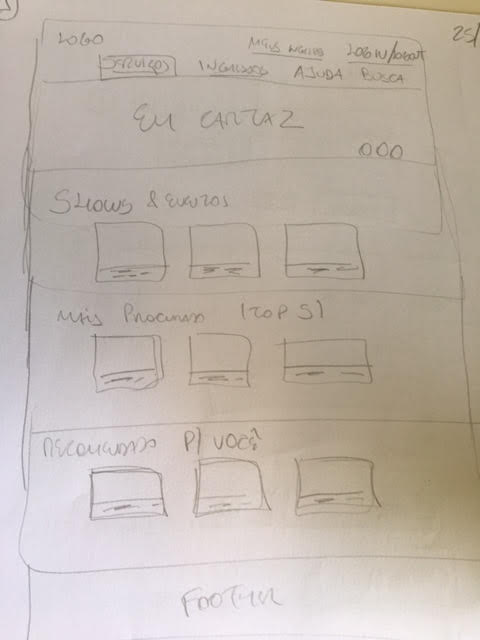 25/
LOGO
MEUS INGRESSOS LOGIN/LOGOUT
SERVIÇOS INGRESSOS AJUDA BUSCA
EM CARTAZ
SHOWS & EVENTOS
MAIS PROCURADO (TOP 5)
RECOMENDADO P/ VOCÊ
FOOTER